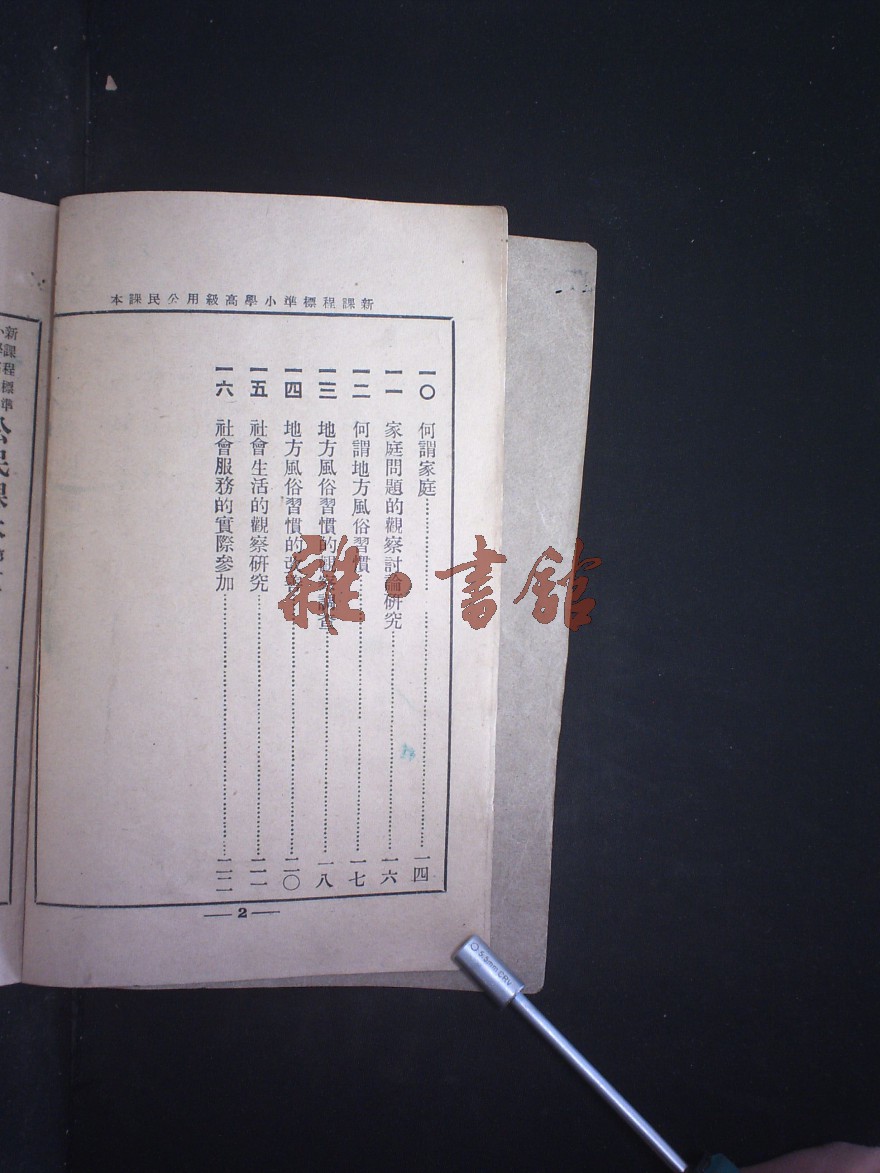 新課程標準小學高級用公民課本
一〇 何謂家庭 一四
一一 家庭問題的觀察討論研究 一六
一二 何謂地方風俗習慣 一七
一三 地方風俗習慣的觀察調查 一八
一四 地方風俗習慣的改 二〇
一五 社會生活的觀察研究 二一
一六 社會服務的實際參加 二二
2
新課程標準
公民課本
雜·書館
5.5mm CRV